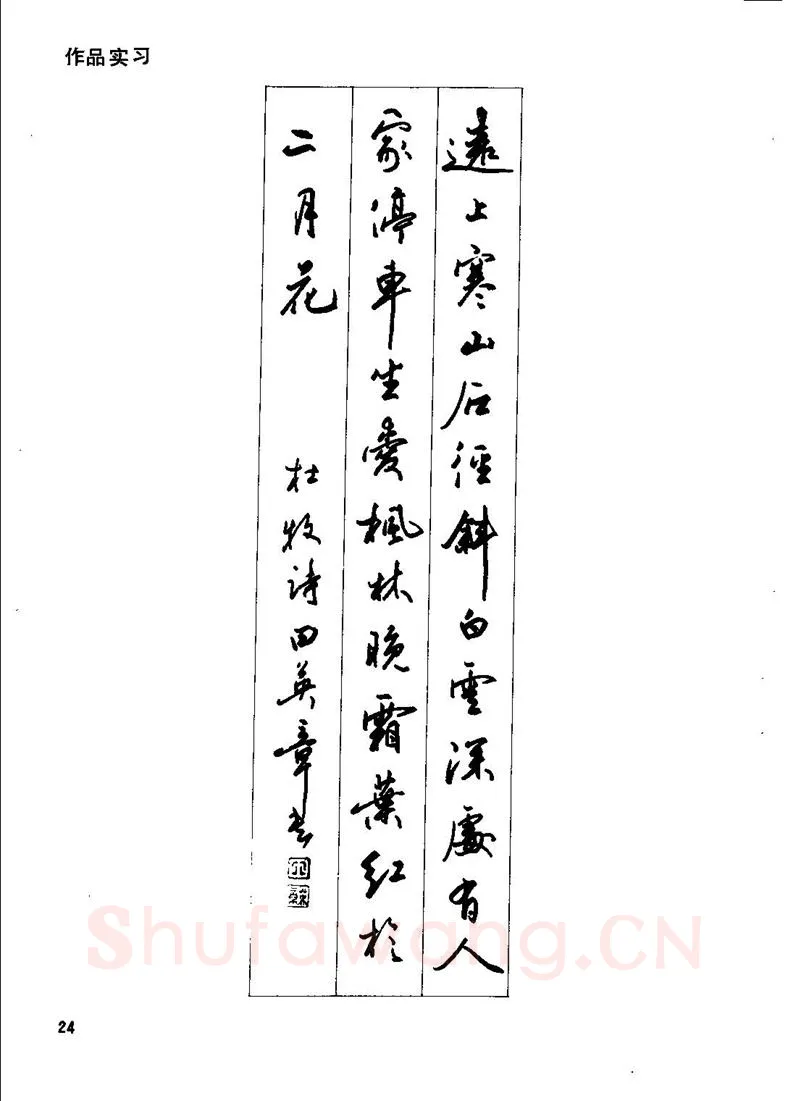 作品实习
遠上寒山石徑斜白雲深處有人
家停車坐愛楓林晚霜葉紅於
二月花 杜牧詩田英章书
Shufawang.CN
24